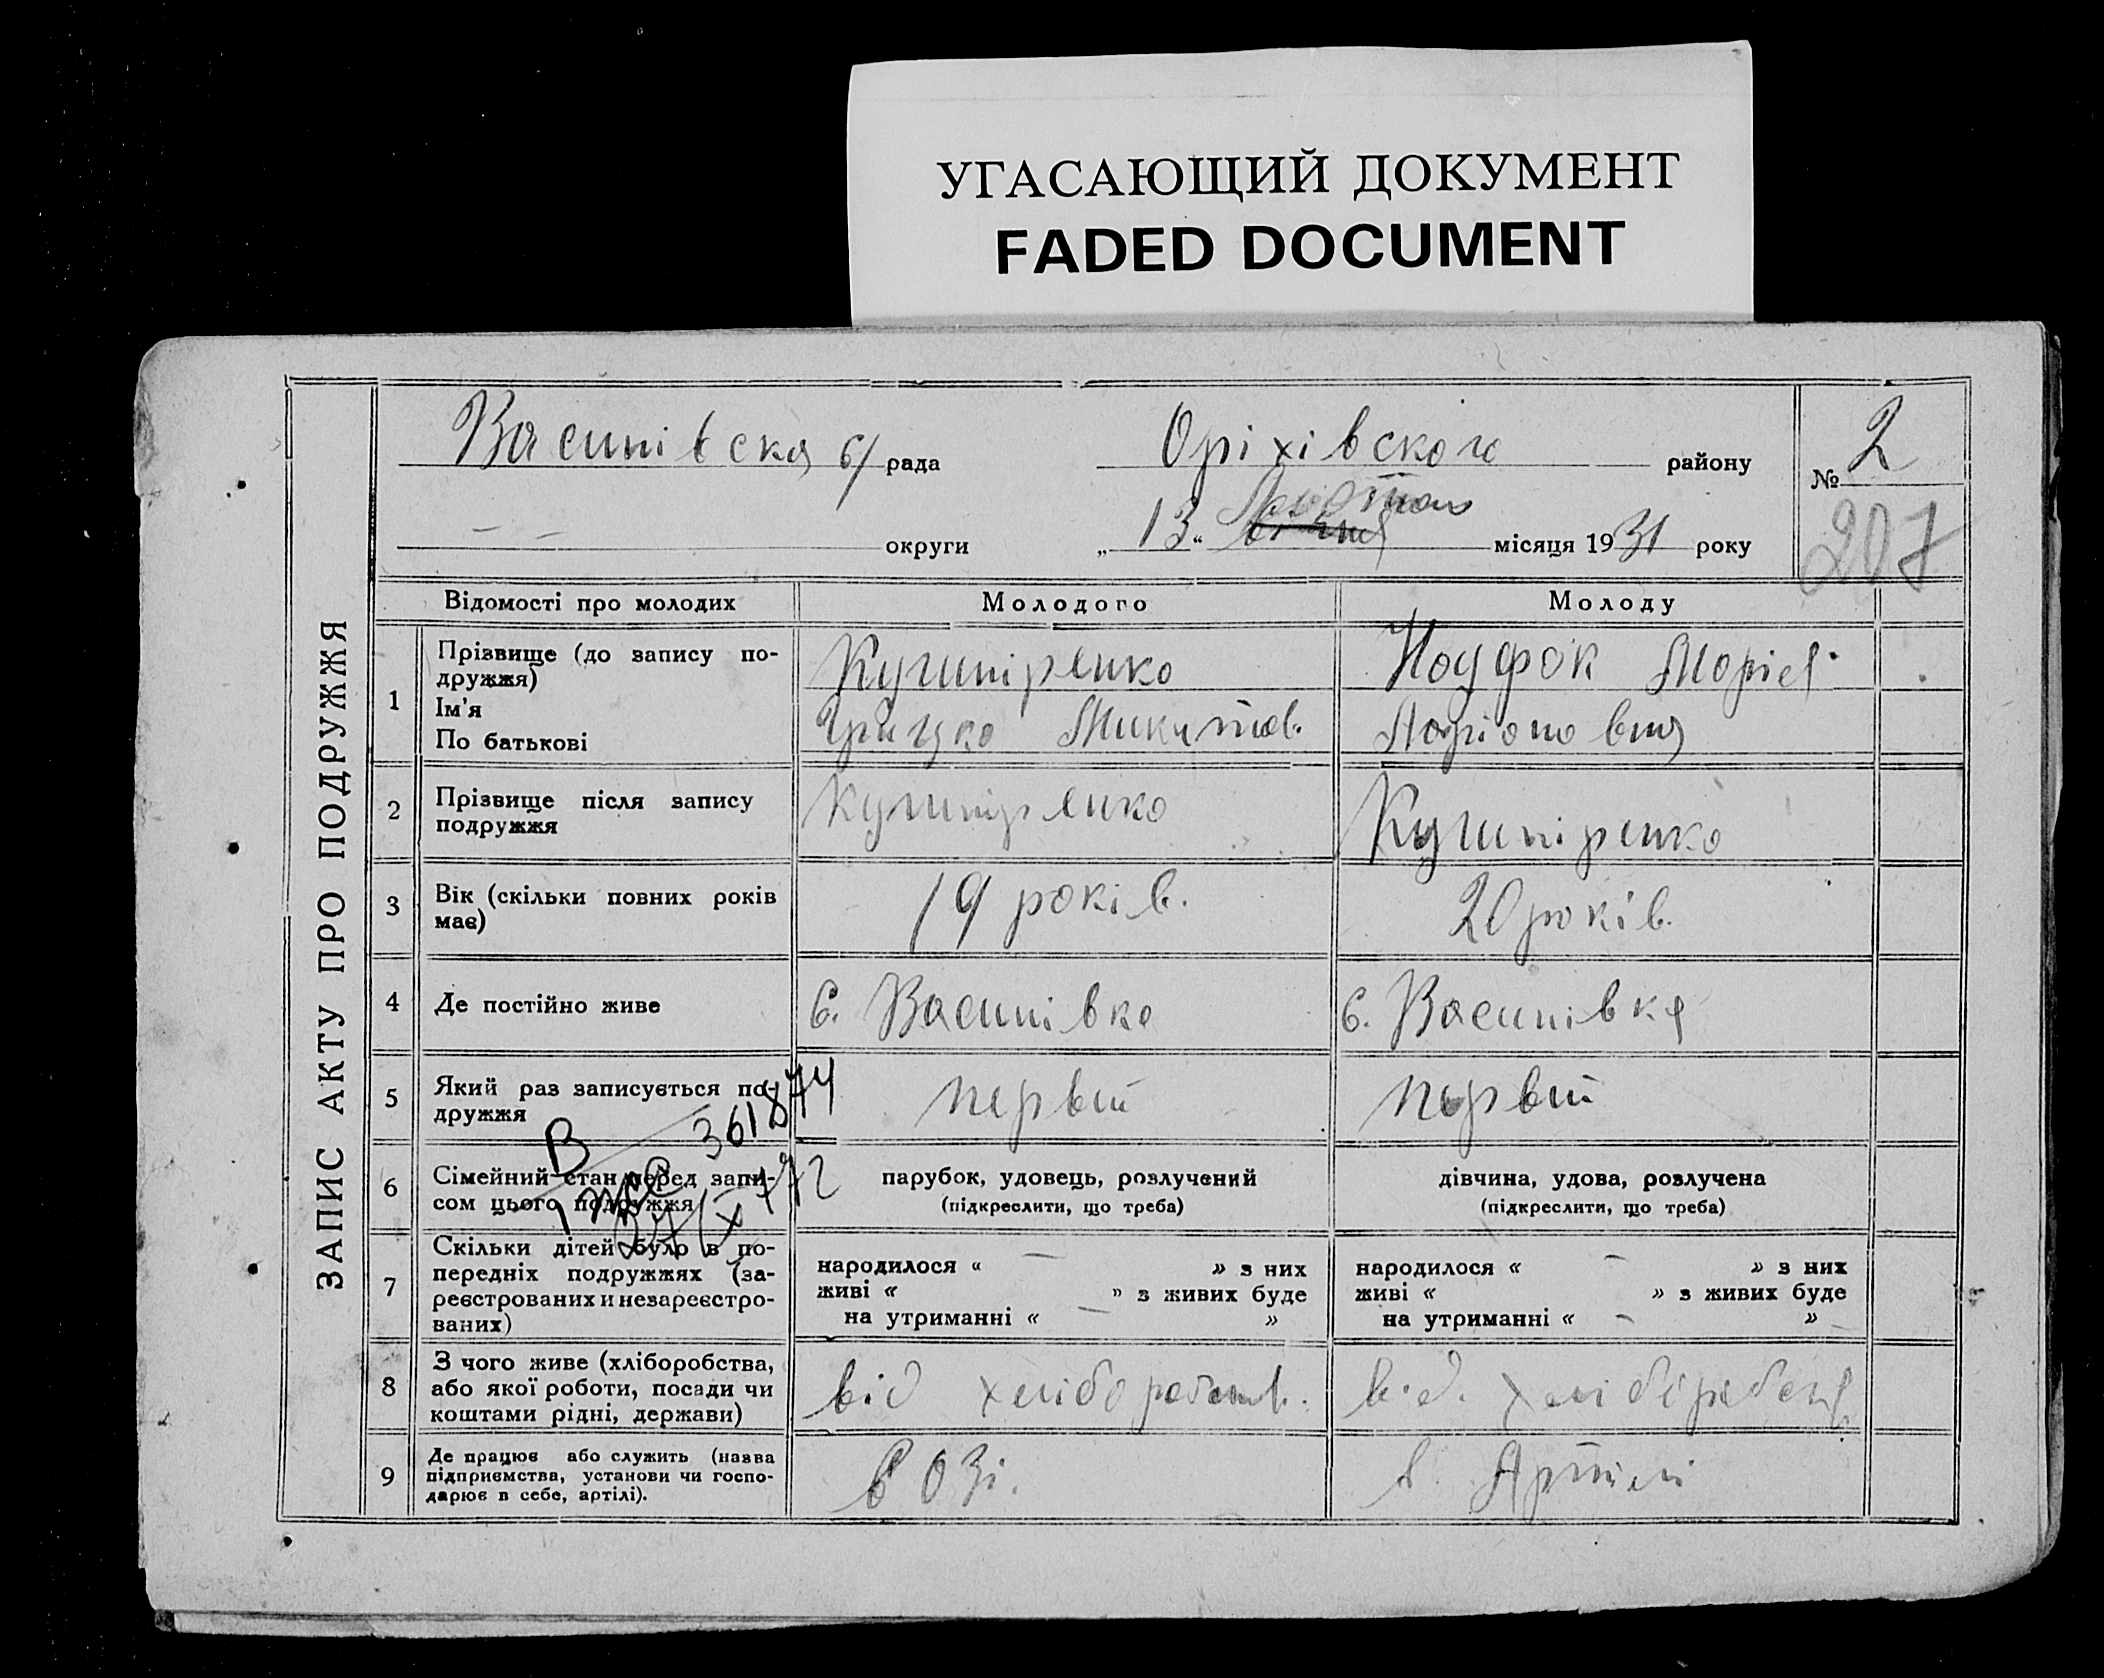 УГАСАЮЩИЙ ДОКУМЕНТ
FADED DOCUMENT
ЗАПИС АКТУ ПРО ПОДРУЖЖЯ
Василівська с/рада Оріхівского району № 2
округи „ 13 “ місяця 1931 року 207
Відомості про молодих Молодого Молоду
1 Прізвище (до запису по-
дружжя) Кушніренко Марія
Ім'я
По батькові Грицко Микитов.
2 Прізвище після запису
подружжя Кушніренко Кушніренко
3 Вік (скільки повних років
має) 19 років. 20 років.
4 Де постійно живе с. Василівка с. Василівка
5 Який раз записується по-
дружжя первий первий
В 361874
6 Сімейний стан перед запи-
сом цього подружжя
парубок, удовець, розлучений дівчина, удова, розлучена
(підкреслити, що треба) (підкреслити, що треба)
7 Скільки дітей було в по-
передніх подружжях (за-
реєстрованих и незареєстро-
ваних)
народилося « — » з них народилося « — » з них
живі « » з живих буде живі « » з живих буде
на утриманні « — » на утриманні « — »
8 З чого живе (хліборобства,
або якої роботи, посади чи
коштами рідні, держави) від хліборобств. від.
9 Де працює або служить (назва
підприємства, установи чи госпо-
дарює в себе, артілі). в Артілі